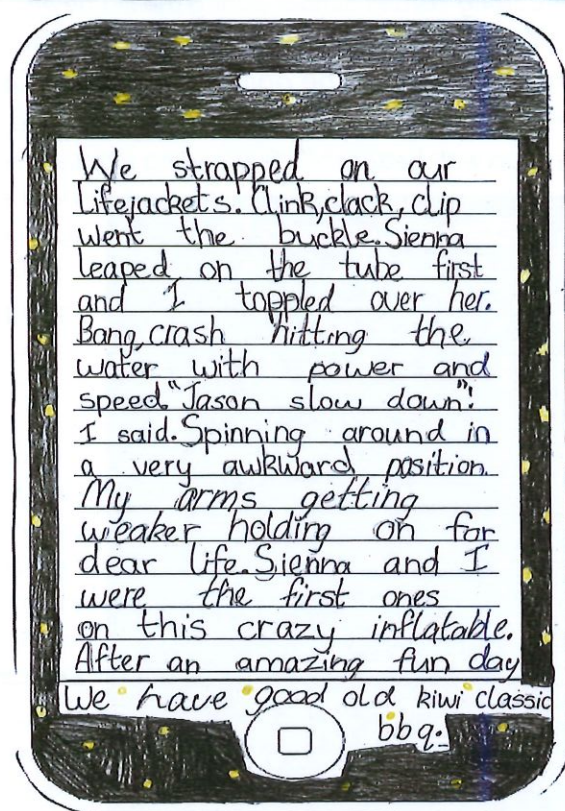 We strapped on our
Lifejackets. Clink, clack, clip
went the buckle. Sienna
leaped on the tube first
and I toppled over her.
Bang, crash hitting the
water with power and
speed. "Jason slow down"!
I said. Spinning around in
a very awkward position.
My arms getting
weaker holding on for
dear life. Sienna and I
were the first ones
on this crazy inflatable.
After an amazing fun day
We have good old kiwi classic
bbq.